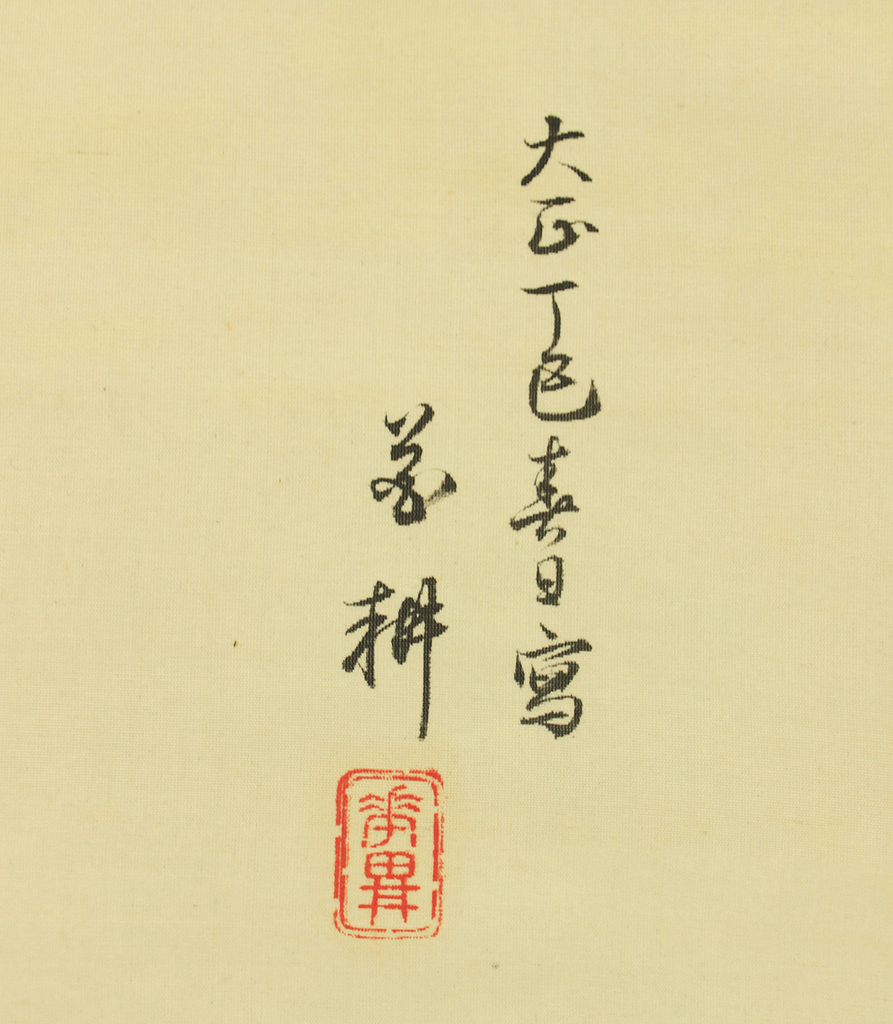 大正丁巳春日寫
耕